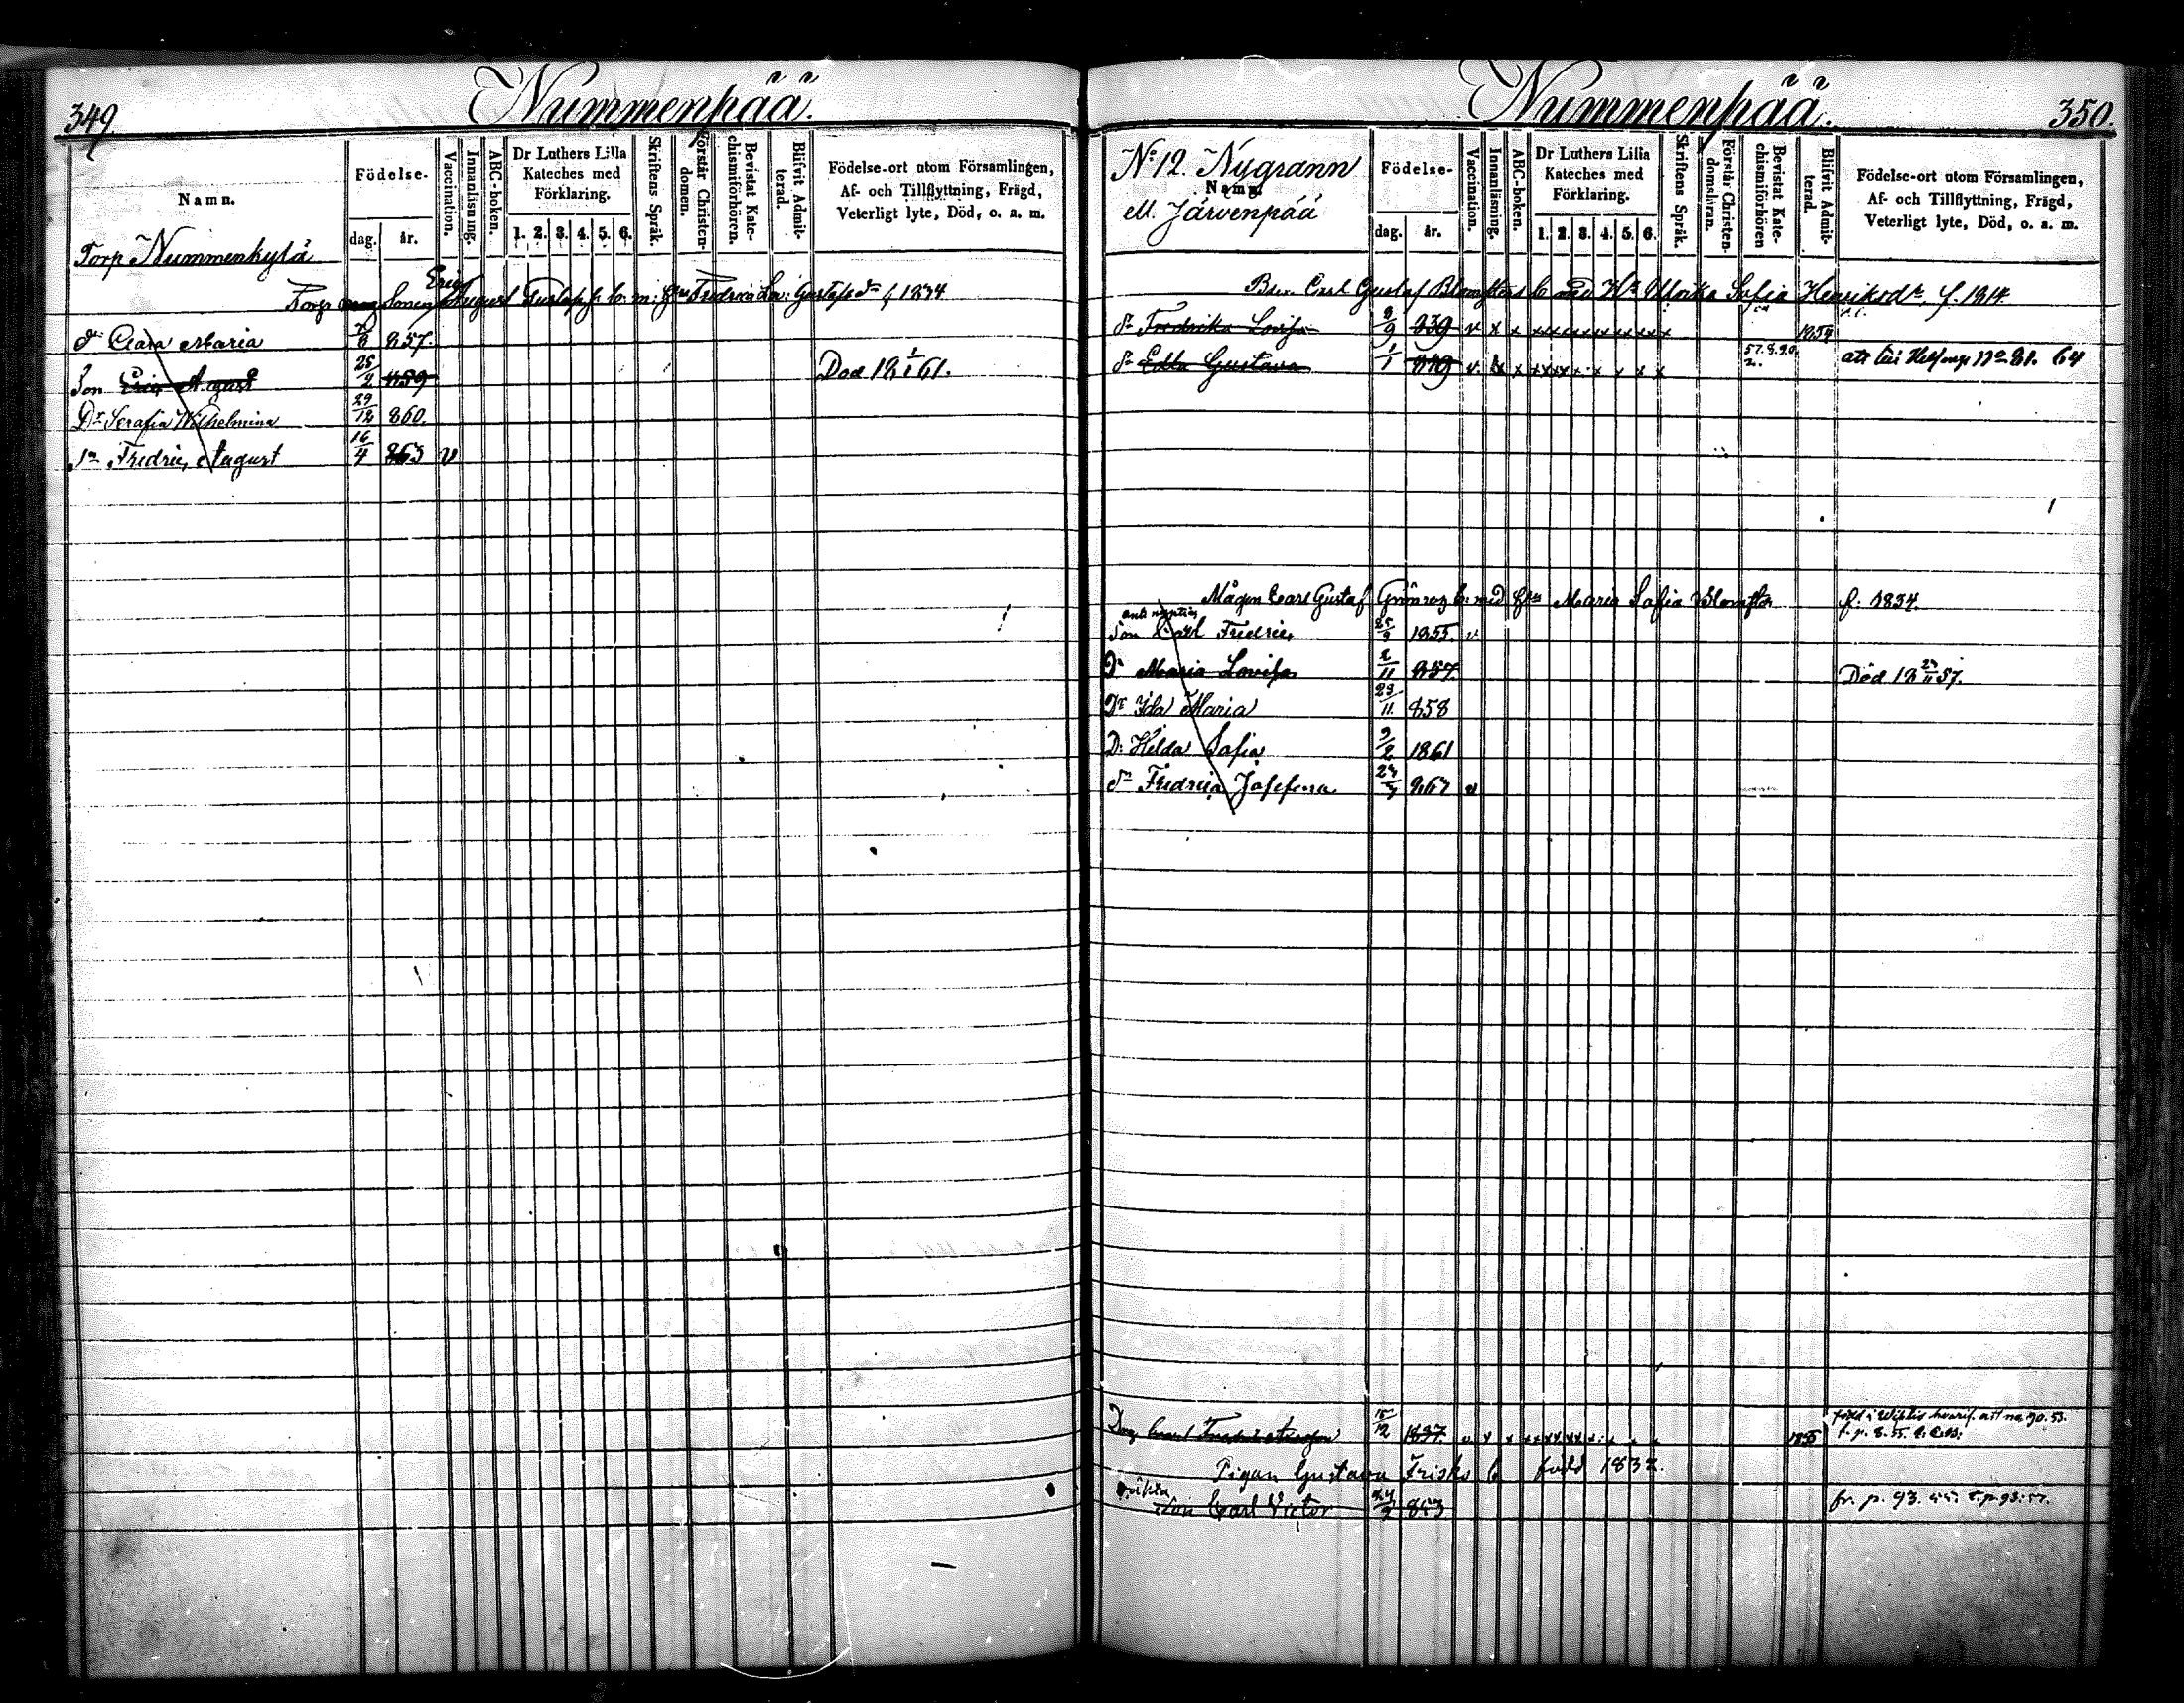 349.
Nummenpää.
Namn.
Födelse-
dag.
år.
Vaccination.
Innanläsning.
ABC-boken.
Dr Luthers Lilla
Kateches med
Förklaring.
1. 2. 3. 4. 5. 6.
Skriftens Språk.
Förstår Christen-
domen.
Bevistat Kate-
chismiförhören.
Blifvit Admit-
terad.
Födelse-ort utom Församlingen,
Af- och Tillflyttning, Frägd,
Veterligt lyte, Död, o. a. m.
Torp Nummenkylä
Torp Sonen Eric August Gustafss b. m: Hu Fredrica Lov: Gustafsdr f. 1834
Dr Clara Maria 857.
Son Eric August 25/2 859 Död 18 1/1 61.
Dr Serafia Wilhelmina 29/12 860.
Sn Fredric August 16/4 863 v
Nummenpää.
350.
No 12. Nygrann
Namn.
ell. Järvenpää
Födelse-
dag.
år.
Vaccination.
Innanläsning.
ABC-boken.
Dr Luthers Lilla
Kateches med
Förklaring.
1. 2. 3. 4. 5. 6.
Skriftens Språk.
Förstår Christen-
domsläran.
Bevistat Kate-
chismiförhören
Blifvit Admit-
terad.
Födelse-ort utom Församlingen,
Af- och Tillflyttning, Frägd,
Veterligt lyte, Död, o. a. m.
Carl Gustaf Blomster b med Hu Ulrika Sofia Henriksdr f. 1814
Dr Fredrika Lovisa 8/9 839 v x x x x x x x x x x x x
Dr Edla Gustava 1/1 849 v x x x x x x x x x 57.8.9.0. 2. No 81. 64
Mågen Carl Gustaf Grönroz b. med Hu Maria Sofia Blomster f. 1834.
Son Carl Fredric 25/9 1855. v
Dr Maria Lovisa 2/11 857. Död 18 29/11 57.
Dr Ida Maria 29/11 858
D: Hilda Sofia 9/2 1861
Dr Fredrica Josefina 867 v
Dr 1837. v x x x x x x x x x 1855
Pigan Gustava Frisk b född 1832.
oäkta
Son Carl Victor 853 fr. p. 93. 55. t. p. 93. 57.